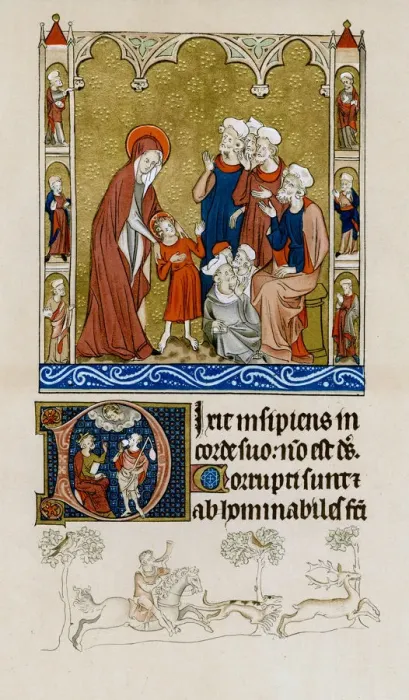 Dixit insipiens in
corde suo: nō est ds̄.
Corrupti sunt ⁊
abhominabiles fc̄i